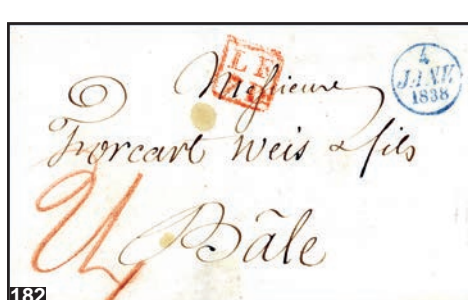 4
JANV.
1838
L F
Messieurs
Forcart Weis & fils
Bâle
182